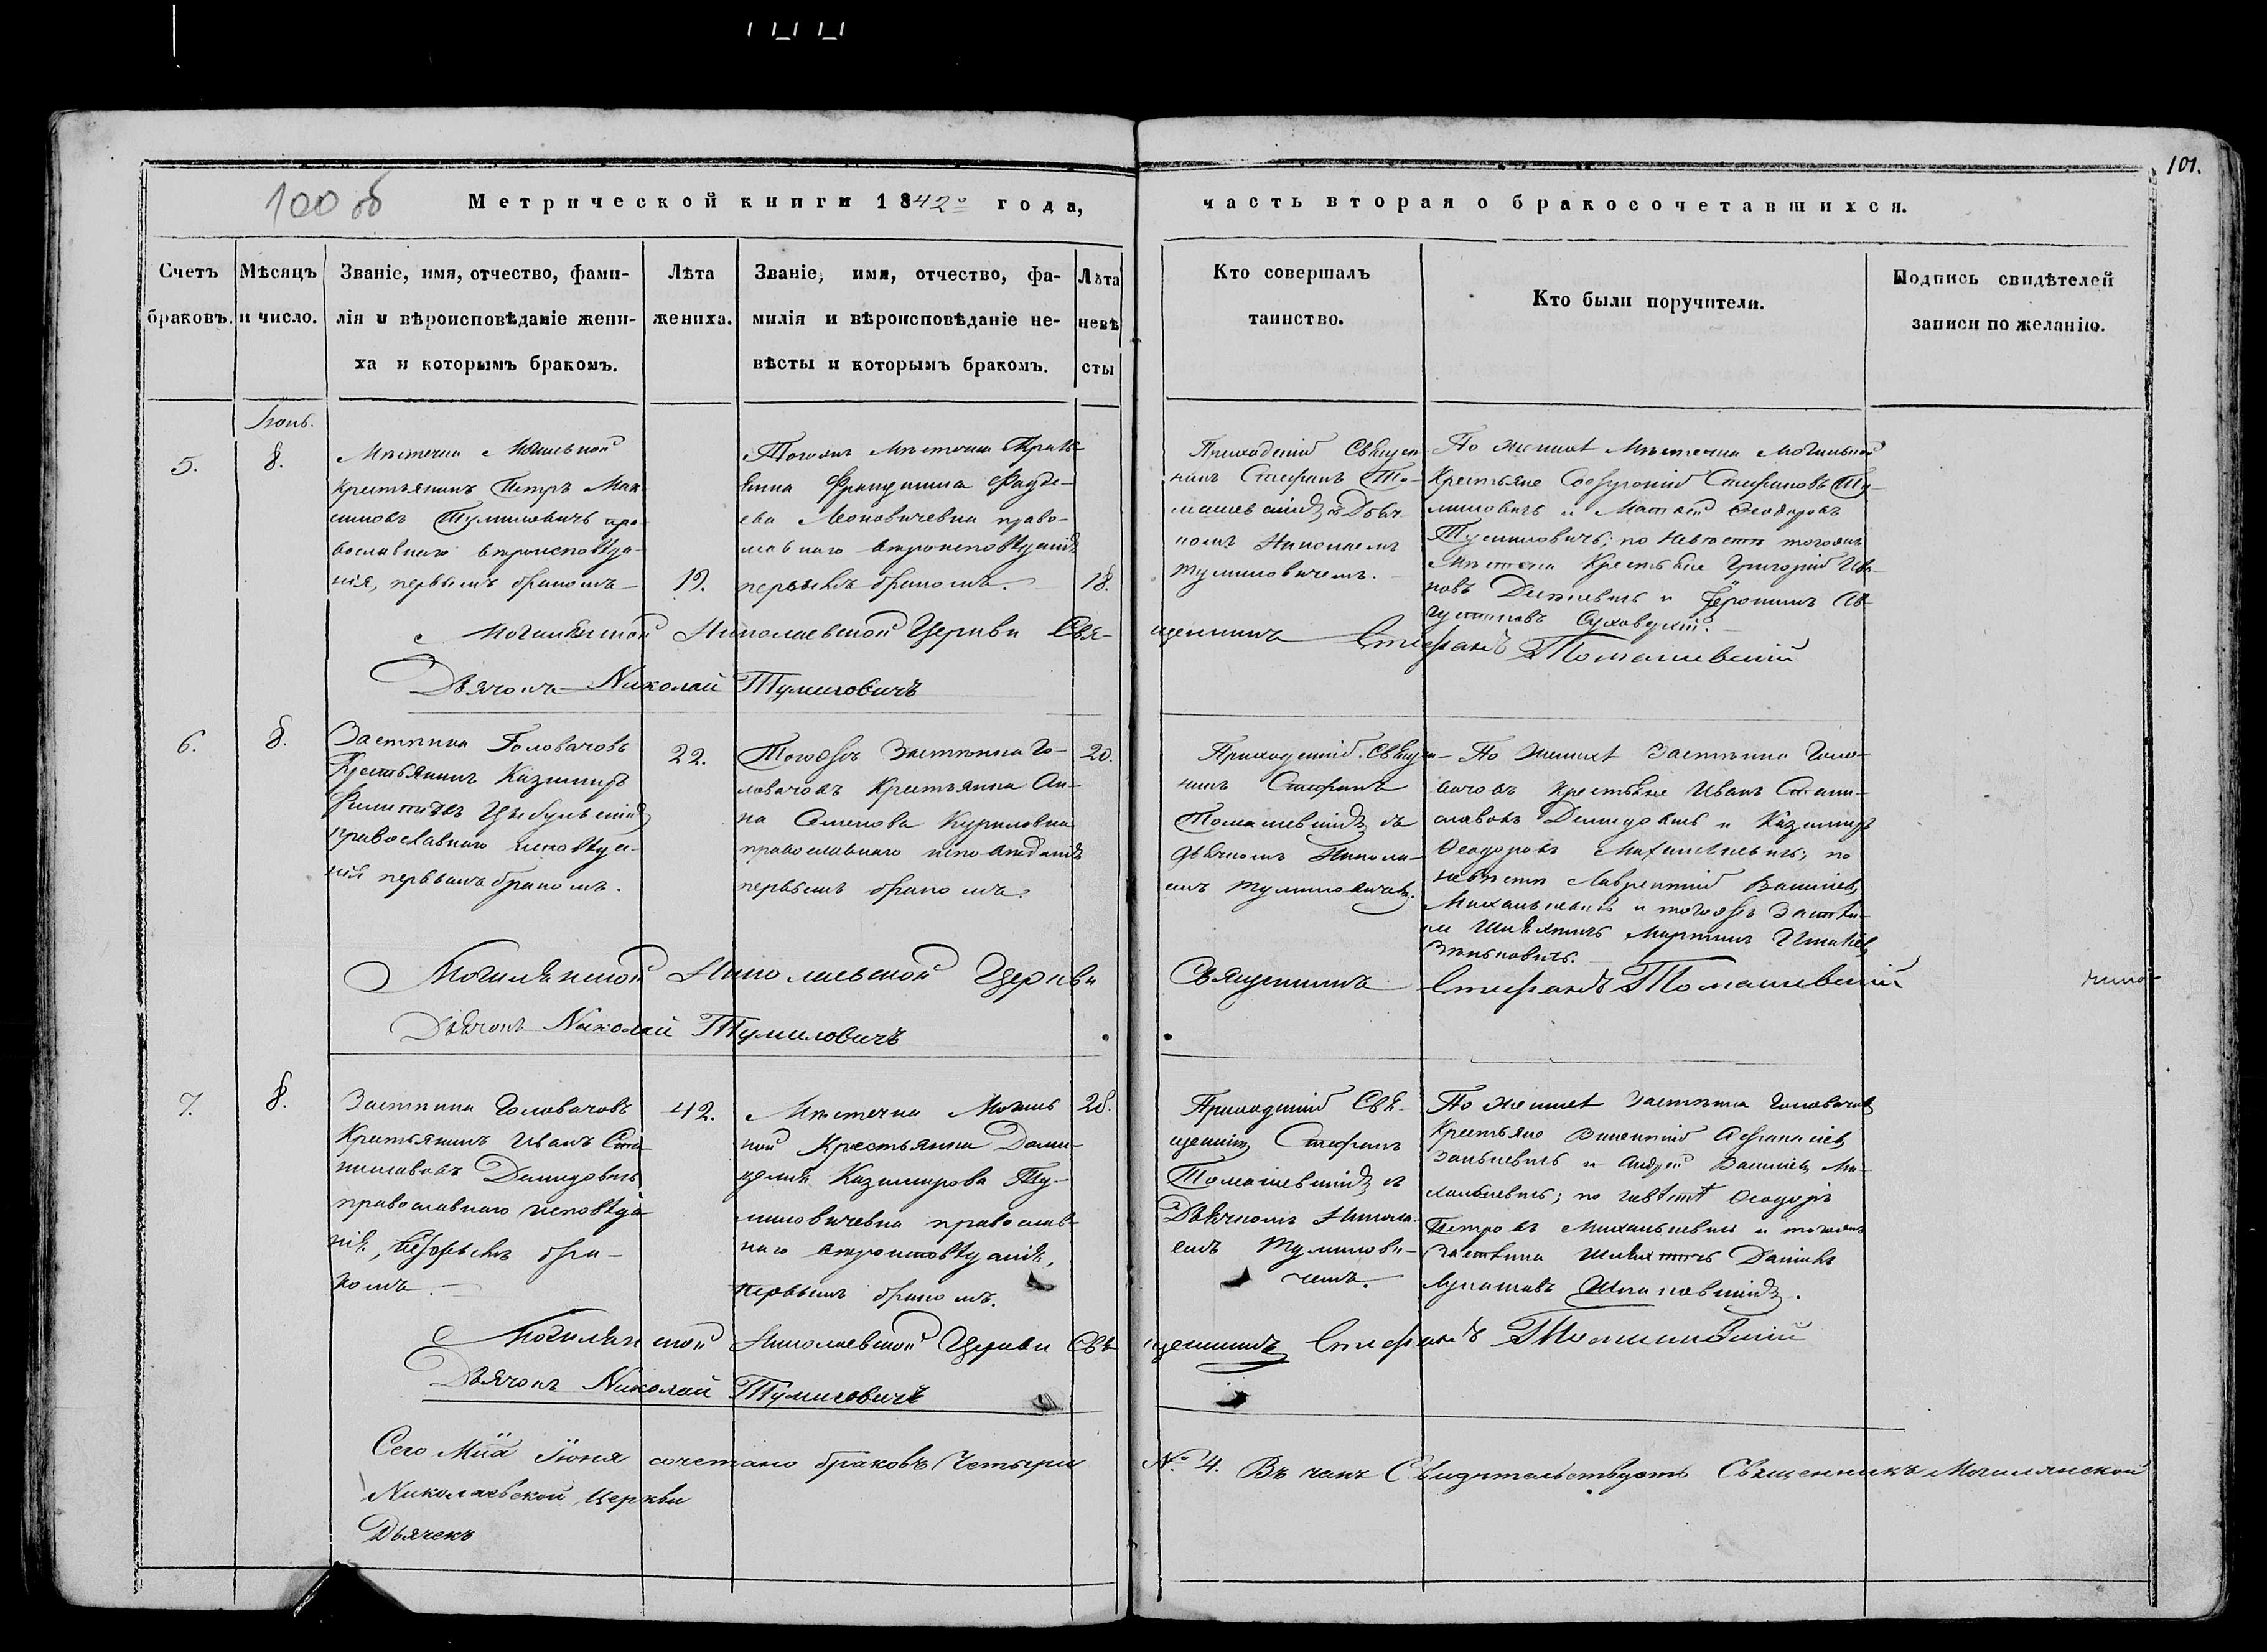 101.
100 об
Метрической книги 1842го года,
часть вторая о бракосочетавшихся.
Счетъ браковъ.
Мѣсяцъ и число.
Званіе, имя, отчество, фами-
лія и вѣроисповѣданіе жени-
ха и которымъ бракомъ.
Лѣта
жениха.
Званіе, имя, отчество, фа-
милія и вѣроисповѣданіе не-
вѣсты и которымъ бракомъ.
Лѣта
невѣ
сты
Кто совершалъ
таинство.
Кто были поручители.
Подпись свидѣтелей
записи по желанію.
5.
8.
Мѣстечка Могильной
Крестьянинъ Петръ Мак-
симовъ Тумиловичъ пра-
вославнаго вѣроисповѣда-
нія, первымъ бракомъ
19.
Тогожъ Мѣстечка Кресть-
янка
Леоновичевна право-
славнаго вѣроисповѣданія
первымъ бракомъ.
18.
Приходскій Священ-
никъ Стефанъ То-
машевскій съ Дьяч-
комъ Николаемъ
Тумиловичемъ.
По женихѣ Мѣстечка Могильной
Крестьяне Стефановъ Ту-
миловичъ и Матвей Феодоровъ
Тумиловичъ; по невѣстѣ тогожъ
Мѣстечка Крестьяне Григорій Ива-
новъ и Іеронимъ Ав-
густиновъ
Могилянской Николаевской Церкви Свя-
щенникъ Стефанъ Томашевскій
Дьячокъ Николай Тумиловичъ
6.
8.
Застѣнка Головачовъ
Крестьянинъ Казимиръ
Цыбульскій
православнаго исповѣда-
нія первымъ бракомъ.
22.
Тогожъ Застѣнка Го-
ловачовъ Крестьянка Ан-
на Семенова Куриловна
православнаго исповѣданія
первымъ бракомъ.
20.
Приходскій Священ-
никъ Стефанъ
Томашевскій съ
Дьячкомъ Никола-
емъ Тумиловичемъ.
По женихѣ Застѣнка Голо-
вачовъ Крестьяне Иванъ Стани-
славовъ Демидовичъ и Казимиръ
Феодоровъ Михалкевичъ; по
невѣстѣ Лаврентій Васильевъ
Михалькевичъ и тогожъ Застѣн-
ка Шляхтичъ Мартинъ
Могилянской Николаевской Церкви
Священникъ Стефанъ Томашевскій
Дьячокъ Николай Тумиловичъ
7.
8.
Застѣнка Головачовъ
Крестьянинъ Иванъ Ста-
ниславовъ Демидовичъ
православнаго исповѣда-
нія, вторымъ бра-
комъ.
42.
Мѣстечка Могиль-
ной Крестьянка Доми-
целія Казимирова Ту-
миловичевна православ-
наго вѣроисповѣданія,
первымъ бракомъ.
28.
Приходскій Свя-
щенникъ Стефанъ
Томашевскій съ
Дьячкомъ Никола-
емъ Тумилови-
чемъ.
По женихѣ Застѣнка Головачовъ
Крестьяне Викентій Афанасіевъ
и Андрей Васильевъ Ми-
халькевичъ; по невѣстѣ Феодоръ
Петровъ Михалькевичъ и тогожъ
Застѣнка Шляхтичъ
Могилянской Николаевской Церкви Свя-
щенникъ Стефанъ Томашевскій
Дьячокъ Николай Тумиловичъ
Сего Мца Іюня сочетано браковъ Четыри
№ 4. Въ чемъ Свидѣтельствуютъ Священникъ Могилянской
Николаевской Церкви
Дьячекъ